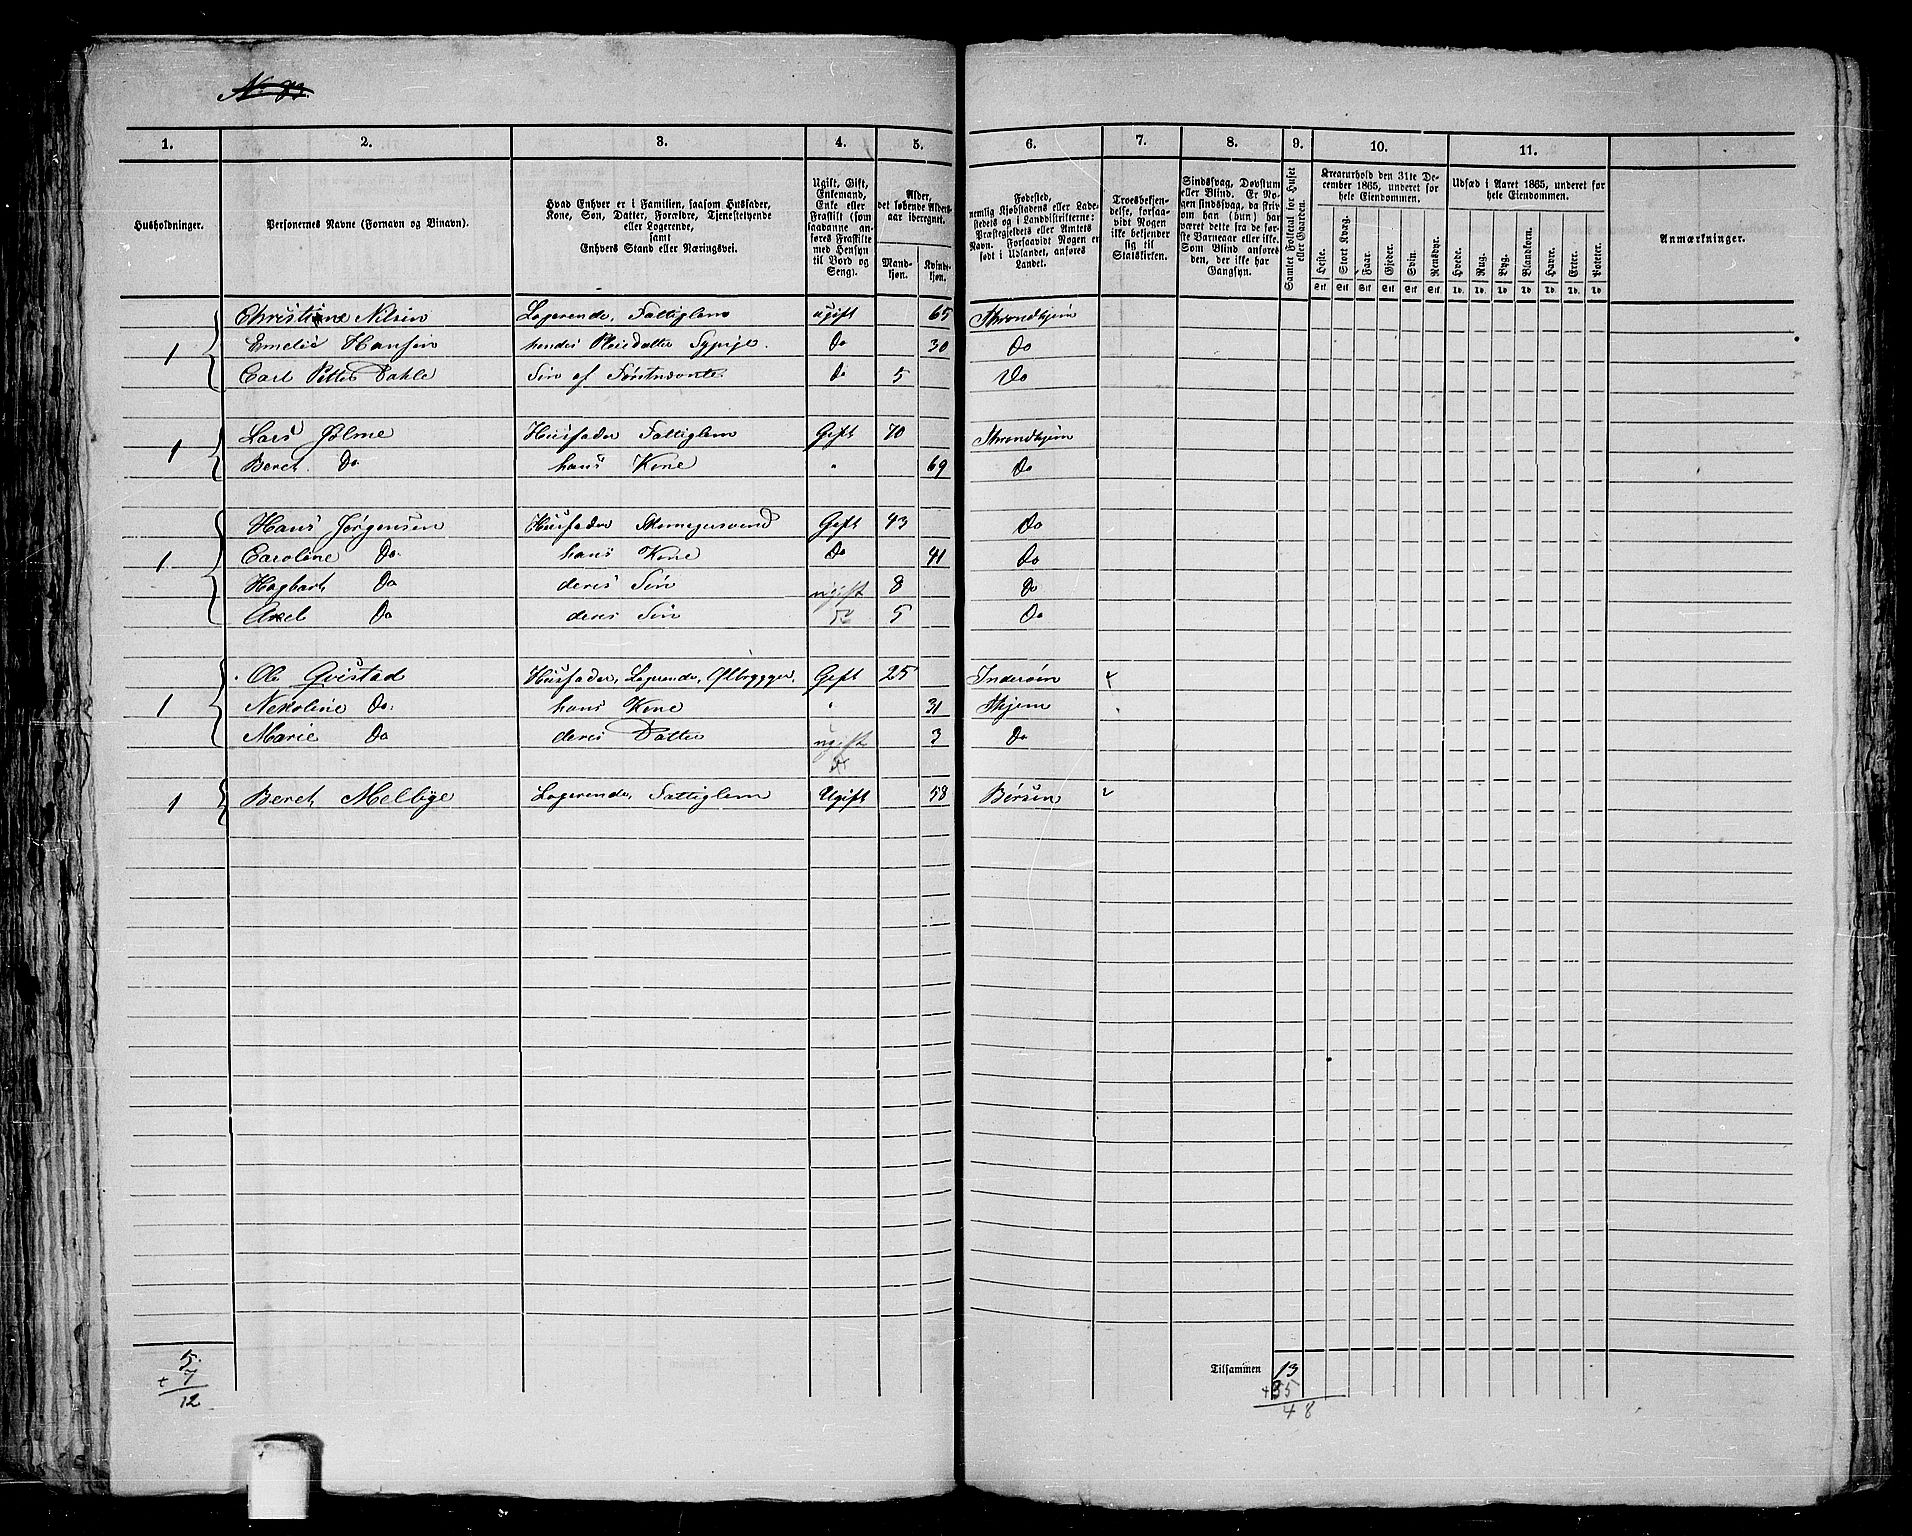 1. 2. 3. 4. 5. 6. 7. 8. 9. 10. 11.
Husholdninger.
Personernes Navne (Fornavn og Binavn).
Hvad Enhver er i Familien, saasom Husfader,
Kone, Søn, Datter, Forældre, Tjenestetyende
eller Logerende,
samt
Enhvers Stand eller Næringsvei.
Ugift, Gift,
Enkemand,
Enke eller
Fraskilt (som
saadanne an-
føres Fraskilte
med Hensyn
til Bord og
Seng).
Alder,
det løbende Alders-
aar iberegnet.
Mand-
kjøn.
Kvinde-
kjøn.
Fødested,
nemlig Kjøbstadens eller Lade-
stedets og i Landdistrikterne:
Præstegjeldets eller Amtets
Navn. Forsaavidt Nogen er
født i Udlandet, anføres
Landet.
Troesbekjen-
delse, forsaa-
vidt Nogen
ikke bekjender
sig til
Statskirken.
Sindssvag, Døvstum
eller Blind. Er No-
gen sindssvag, da skriv
om han (hun) har
været dette fra de før-
ste Barneaar eller ikke.
Som Blind anføres
den, der ikke har
Gangsyn.
Samlet Folketal for Huset
eller Gaarden.
Kreaturhold den 31te De-
cember 1865, underet for
hele Eiendommen.
Heste. Stort Kvæg. Faar. Gjeder. Svin. Rensdyr.
Stk. Stk. Stk. Stk. Stk. Stk.
Udsæd i Aaret 1865, underet for
hele Eiendommen.
Hvede. Rug. Byg. Blandkorn. Havre. Erter. Poteter.
Td. Td. Td. Td. Td. Td. Td.
Anmærkninger.
Christine Nilsen Logerende, Fattiglem ugift 65 Throndhjem
1 Emelie Hansen hendes Pleiedatter Sypige. Do 30 Do
Carl Petter Dahle Søn af Førstnævnte Do 5 Do
Lars Jølme Husfader Fattiglem Gift 70 Throndhjem
1 Beret Do hans Kone " 69 Do
Hans Jørgensen Husfader Skomagersvend Gift 43 Do
1. Caroline Do hans Kone Do 41 Do
Hagbart Do deres Søn ugift 8 Do
Axel Do deres Søn 5 Do
Ole Qvistad Husfader, Logerende, Ølbrygger. Gift 25 Inderøen
1 Nekoline Do. hans Kone " 31 Skjern
Marie Do deres Datter ugift 3 Do
1 Beret Melbye Logerende, Fattiglem Ugift 58 Børsen
5.
+ 7
12
Tilsammen 13
+35
48